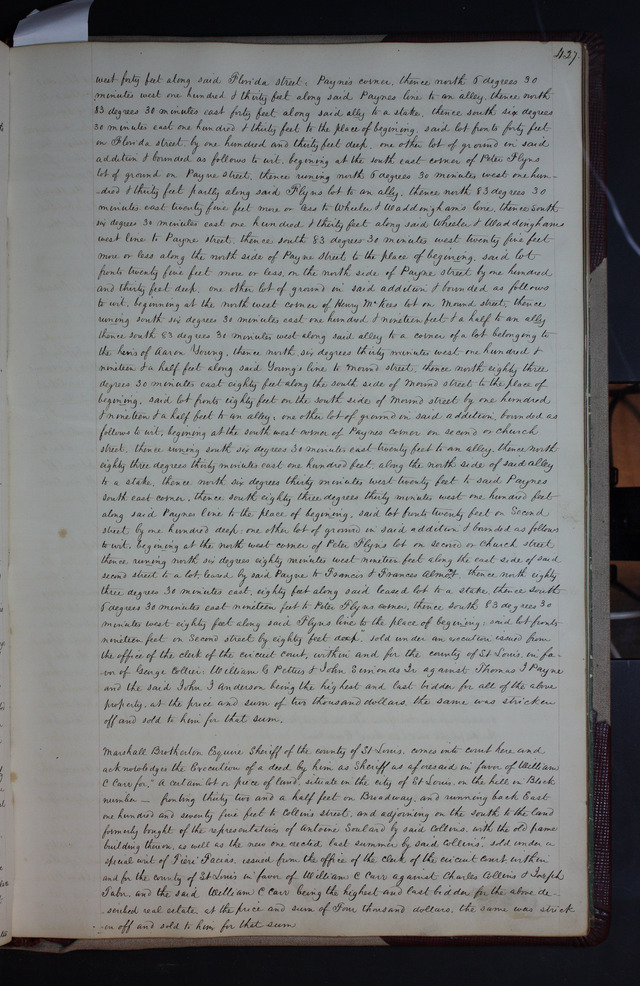 427
west forty feet along said Florida street, Paynes corner, thence north 6 degrees 30
minutes west one hundred & thirty feet along said Paynes line to an alley, thence north
83 degrees 30 minutes east forty feet along said ally to a stake, thence south six degrees
30 minutes east one hundred & thirty feet to the place of begining, said lot fronts forty feet
on Florida street, by one hundred and thirty feet deep, one other lot of ground in said
addition & bounded as follows to wit, begoning at the south east corner of Peter Flyns
lot of ground on Payne street, thence runing north 6 degrees 30 minutes west one hun-
-dred & thirty feet partly along said Flyns lot to an ally, thence north 83 degrees 30
minutes east twenty five feet more or less to Wheeler & Waddonghams line, thence South
six degrees 30 minutes east one hundred & thirty feet along said Wheeler & Waddonghams
west line to Payne street, thence south 83 degrees 30 minutes west twenty five feet
more or less along the north side of Payne street to the place of begoning, said lot
fronts twenty five feet more or less, on the north side of Payne street by one hundred
and thirty feet deep, one other lot of ground in said addition & bounded as follows
to wit, beginning at the north west corner of Henry McKees lot on Mound street, thence
runing south six degrees 30 minutes east one hundred & nineteen feet & a half to an ally
thence south 83 degrees 30 minutes west along said alley to a corner of a lot belonging to
the heirs of Aaron Young, thence north, six degrees thirty minutes west one hundred &
nineteen & a half feet along said Young's line to Mound street, thence north eighty three
degrees 30 minutes east eighty feet along the south side of Mound street to the place of
begining, said lot fronts eighty feet on the south side of Mound street by one hundred
& nineteen & a half feet to an alley, one other lot of ground in said addition, bounded as
follows to wit, begoning at the south west corner of Paynes corner on second or Church
street, thence runing south six degrees 30 minutes east twenty feet to an alley, thence north
eighty three degrees thirty minutes east one hundred feet, along the north side of said alley
to a stake, thence north six degrees thirty minutes west twenty feet to said Paynes
south east corner, thence south eighty three degrees thirty minutes west one hundred feet
along said Paynes line to the place of begoning, said lot fronts twenty feet on Second
street, by one hundred deep, one other lot of ground in said addition & bounded as follows
to wit, begining at the north west corner of Peter Flyns lot on second or Church street
thence runing north six degrees eighty minutes west nineteen feet along the east side of said
second street to a lot leased by said Payne to Francis & Frances thence north eighty
three degrees 30 minutes east, eighty feet along said leased lot to a stake, thence south
6 degrees 30 minutes east nineteen feet to Peter Flyns corner, thence south 83 degrees 30
minutes west eighty feet along said Flyns line to the place of begoning, said lot fronts
nineteen feet on Second street by eighty feet deep, sold under an execution issued from
the office of the clerk of the circuit court, within and for the county of St Louis, in fa-
vor of George Collier, William G Pettus & John Simonds Jr against Thomas J Payne
and the said John J Anderson being the highest and last bidder for all of the above
property, at the price and sum of two thousand dollars, the same was stricken
off and sold to him for that sum.
Marshall Brotherton Esquire Sheriff of the county of St Louis, comes into court here and
acknowledges the Execution of a deed by him as Sheriff as aforesaid in favor of William
C Carr for, "A certain lot or piece of land, situate in the city of St Louis, on the hill in Block
number — fronting thirty two and a half feet on Broadway, and running back East
one hundred and seventy five feet to Collins street, and adjoining on the south to the land
formerly bought of the representatives of Antoine Soulard by said Collins, with the old frame
building thereon, as well as the new one erected last summer by said Collins", sold under a
special writ of Fieri Facias, issued from the office of the clerk of the circuit court within
and for the county of St Louis in favor of William C Carr against Charles Collins & Joseph
Tabor, and the said William C Carr being the highest and last bidder for the above de-
scribed real estate, at the price and sum of Four thousand dollars, the same was strick
-en off and sold to him for that sum